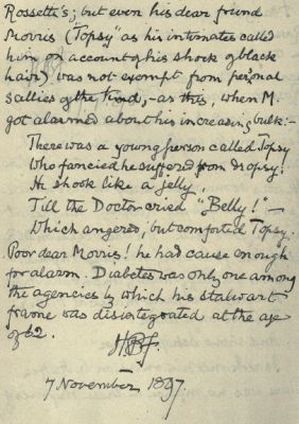 Rossetti's; but even his dear friend
Morris ("Topsy" as his intimates called
him on account of his shock of black
hair) was not exempt from personal
sallies of the kind,—as this, when M.
got alarmed about his increasing bulk:—
There was a young person called Topsy
Who fancied he suffered from dropsy;
He shook like a jelly,
Till the Doctor cried "Belly!"—
Which angered, but comforted Topsy.
Poor dear Morris! he had cause enough
for alarm. Diabetes was only one among
the agencies by which his stalwart
frame was disintegrated at the age
of 62.
HBF
7 November 1897.